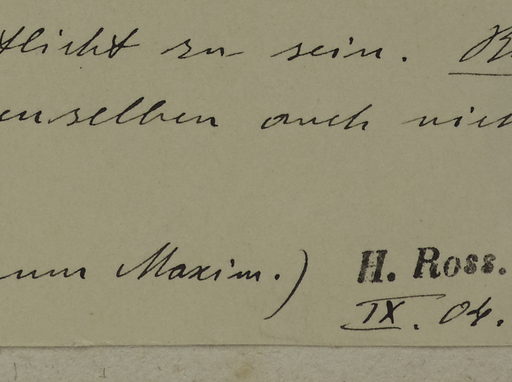 tlicht zu sein. B
enselben auch nich
um Maxim.) H. Ross.
IX. 04.